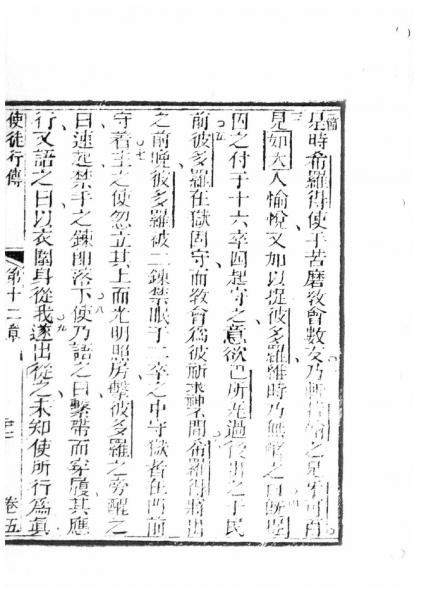 是時希羅得使手苦磨教會數友乃斬之兄
見如大人愉悅又加以捉彼多羅維時乃無酵之日既捉
囚之付于十六卒四起守之意欲巴所過後出之于民
前彼多羅在獄固守而教會為彼祈求神不間希羅得將出
之前晚彼多羅被二鍊禁眠于二卒之中守獄者在門前
守着主之使忽立其上而光明照房擊彼多羅之旁醒之
曰速起禁手之鍊即落下使乃語之曰繫帶而穿履其應
行又語之曰以衣圍身從我遂出從之未知使所行為真
使徒行傳 第十二章 卷五